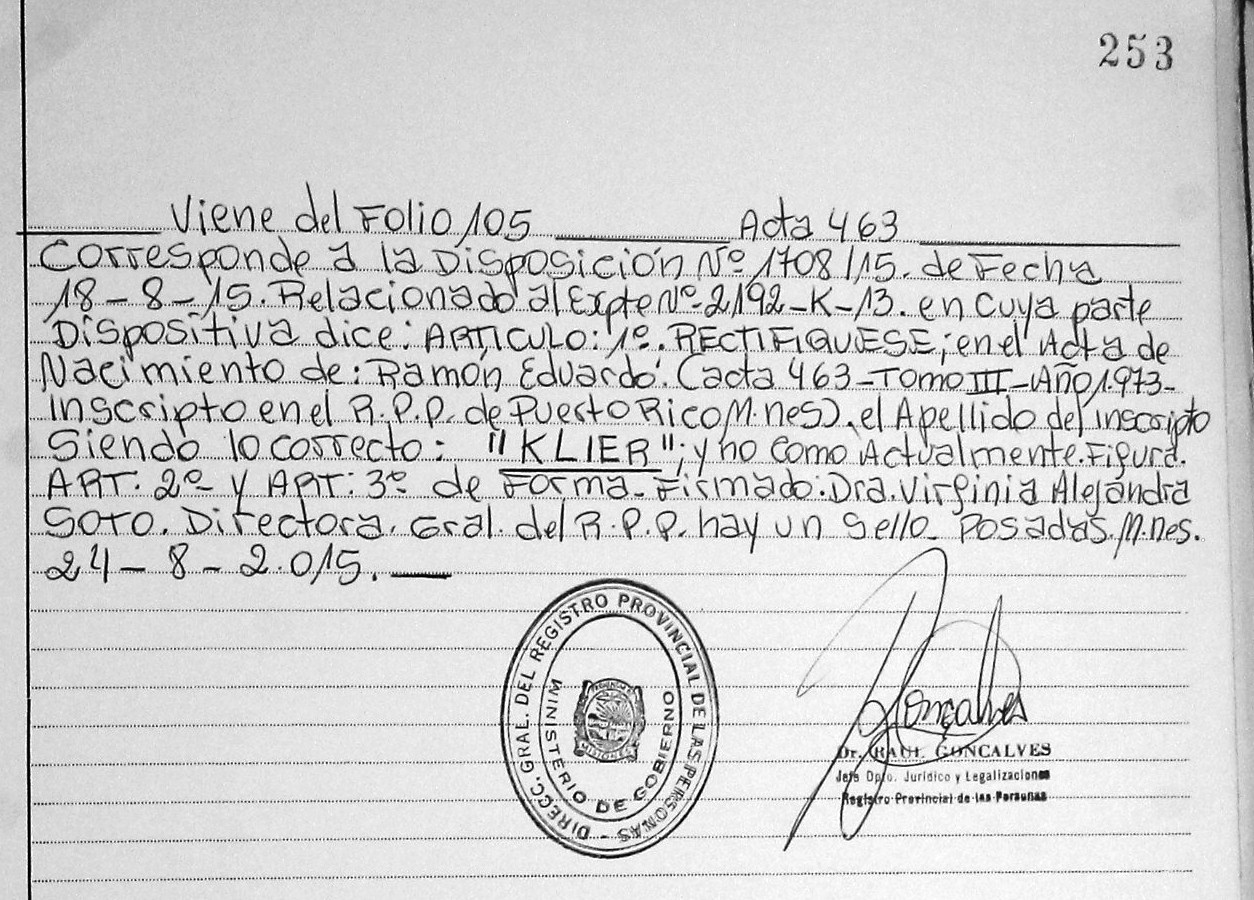 253
Viene del Folio 105 Acta 463
Corresponde a la Disposición Nº 1708/15. de Fecha
18-8-15. Relacionado al Expte Nº 2192-K-13. en cuya parte
Dispositiva dice: ARTICULO: 1º. RECTIFIQUESE; en el Acta de
Nacimiento de: Ramón Eduardo. (acta 463-Tomo III-Año 1.973-
inscripto en el R.P.P. de Puerto Rico M.nes), el Apellido del inscripto
Siendo lo correcto: "KLIER"; y no como Actualmente. Figura.
ART: 2º y ART: 3º de Forma. Firmado: Dra. Virginia Alejandra
SOTO. Directora. Gral. del R.P.P. hay un Sello. Posadas. M.nes.
24-8-2.015.
DIRECC. GRAL. DEL REGISTRO PROVINCIAL DE LAS PERSONAS -
MINISTERIO DE GOBIERNO
MISIONES
Goncalves
Dr. RAUL GONCALVES
Jefe Dpto. Jurídico y Legalizaciones
Registro Provincial de las Personas